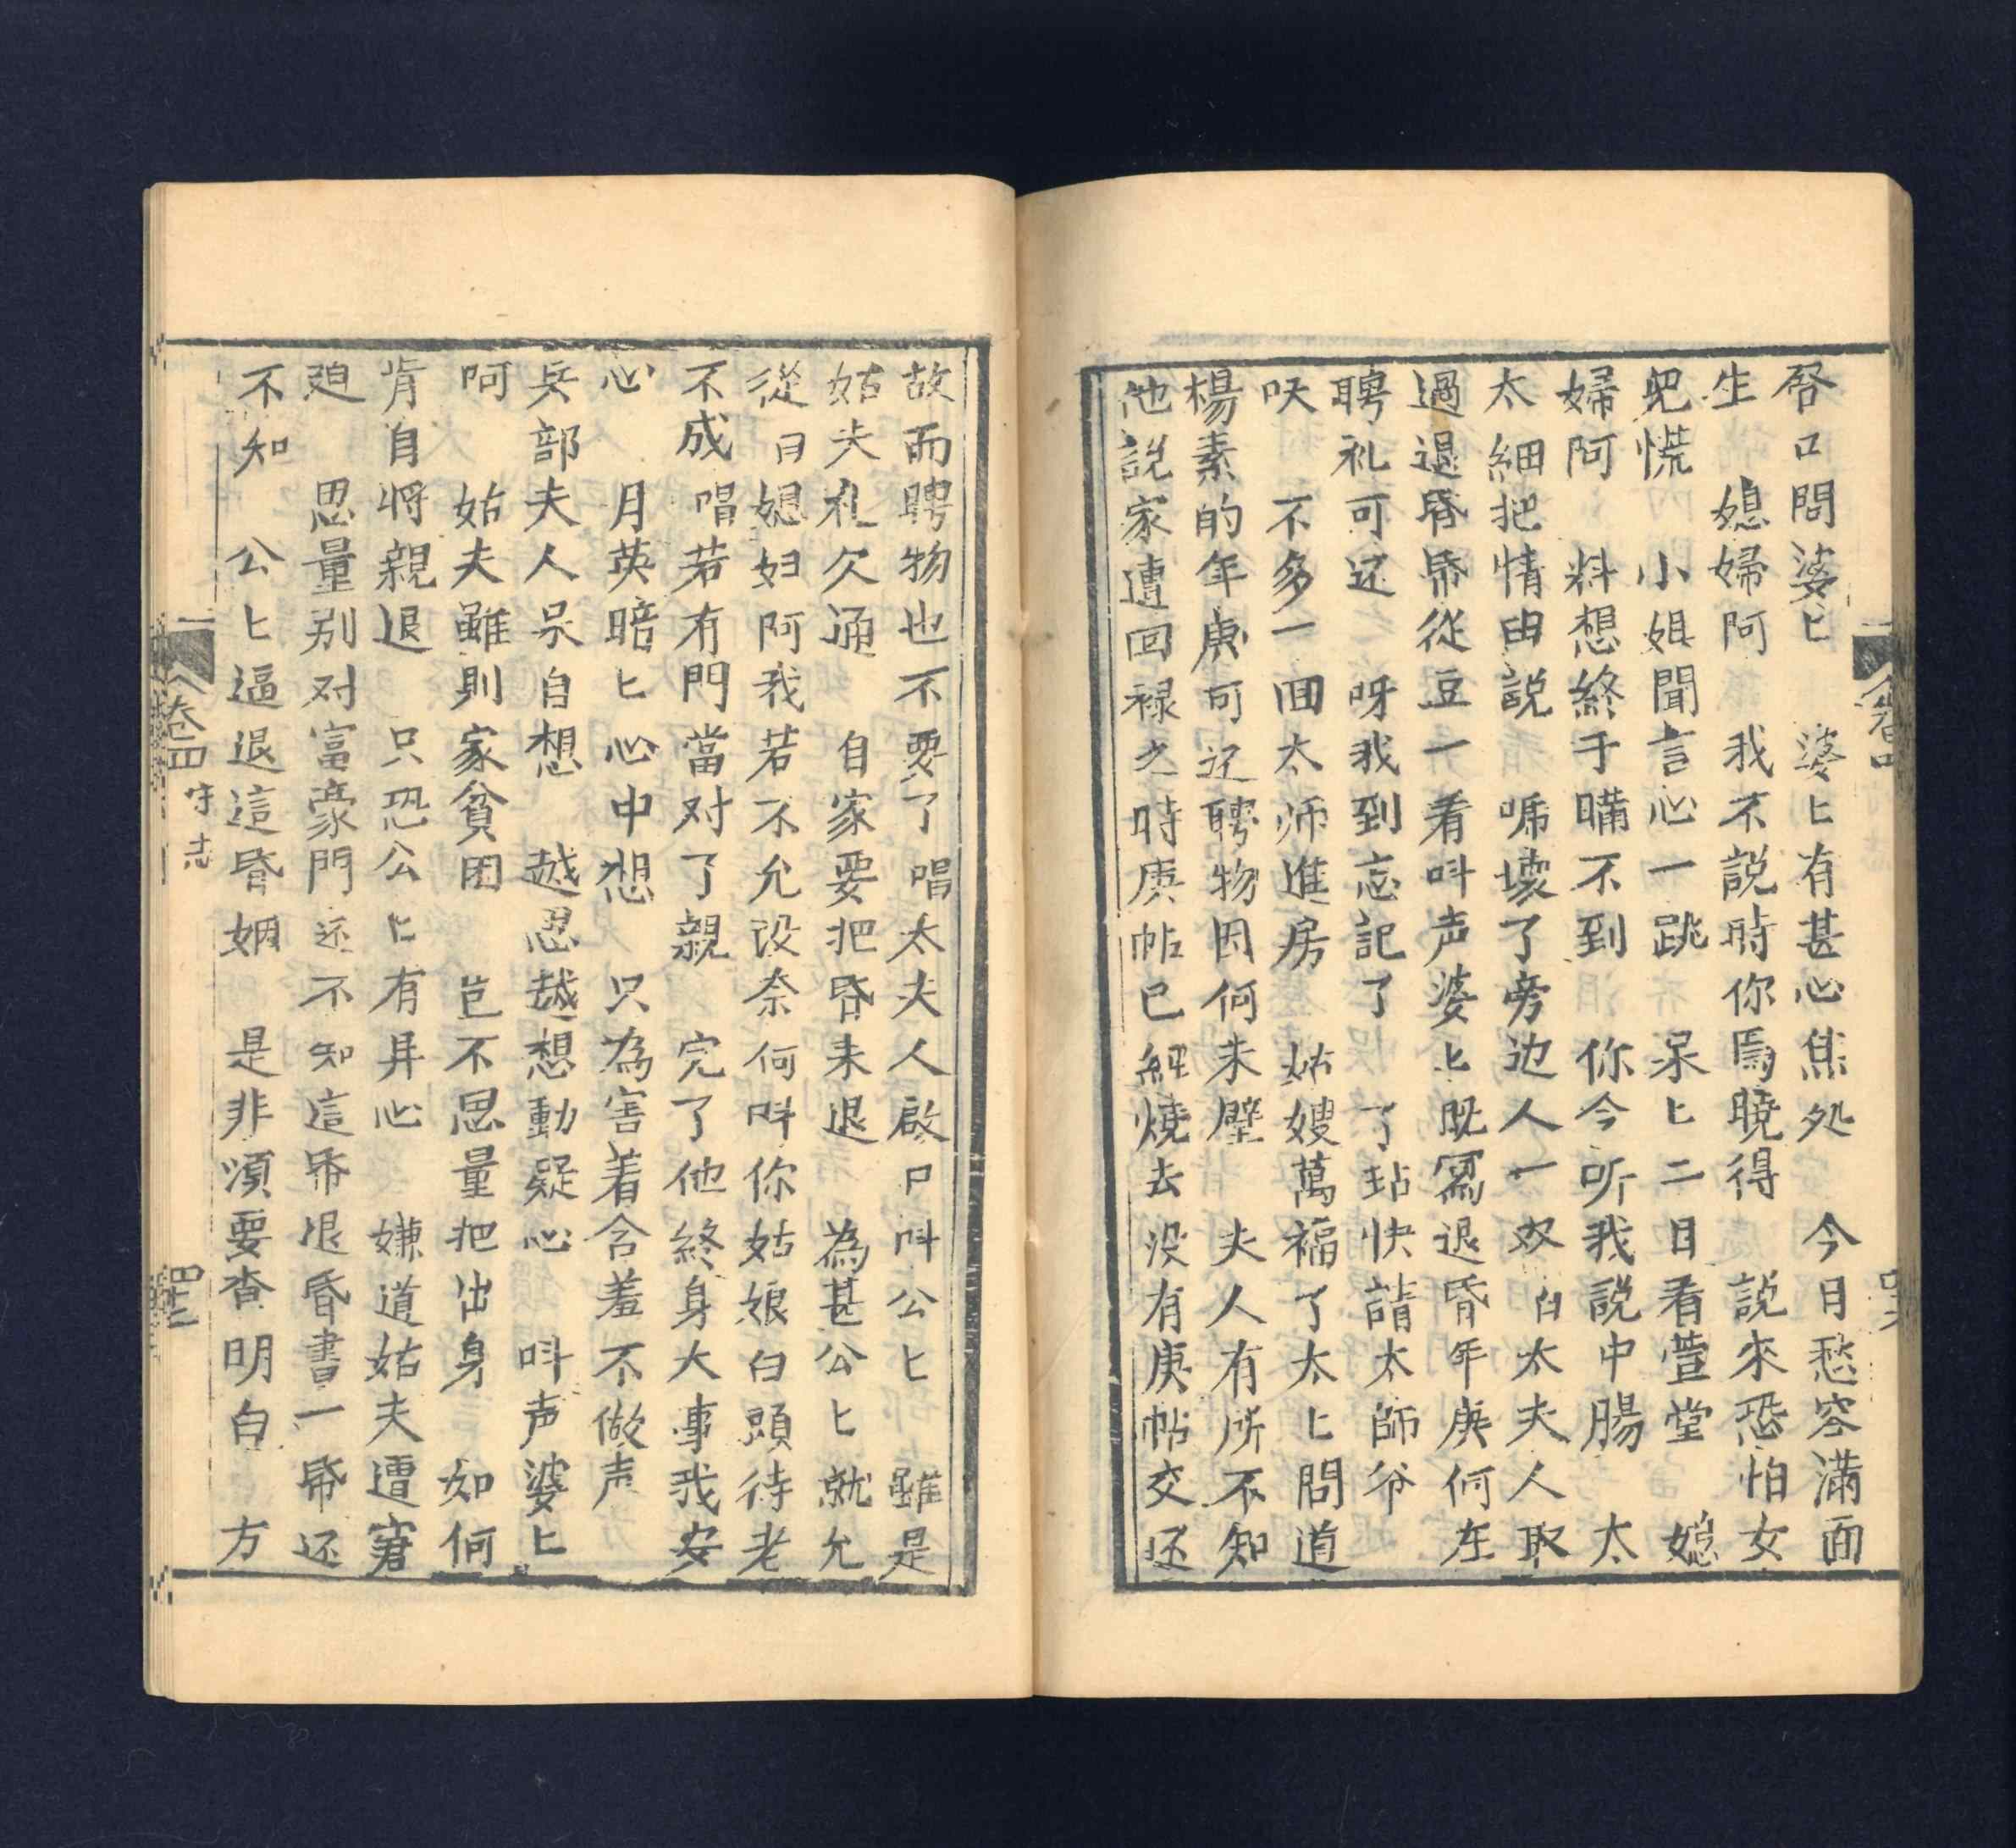 啓口問婆〻　婆〻有甚心焦处　今日愁容滿面
生　媳婦阿　我不説時你焉曉得　説來恐怕女
兒慌　小姐聞言心一跳　呆〻二目看萱堂　媳
婦阿　料想終于瞞不到　你今听我説中腸　太
太細把情由説　唬壞了旁边人一双　白太夫人取
過退昏帋從豆一看呌声婆〻既寫退昏年庚何在
聘礼可还　呀我到忘記了　了玷快請太師爷
呋　不多一回太师進房　姑嫂萬福了太〻問道
楊素的年庚可还聘物因何未璧　夫人有所不知
他説家遭回禄之時庚帖已經燒去没有庚帖交还
卷四
故而聘物也不要了唱太夫人啟口呌公〻　雖是
姑夫礼欠通　自家要把昏来退　為甚公〻就允
從白媳妇阿我若不允没奈何呌你姑娘白頭待老
不成唱若有門當对了親　完了他終身大事我安
心　月英暗〻心中想　只為害着含羞不做声
兵部夫人呆自想　越思越想動疑心　呌声婆〻
阿　姑夫雖則家貧困　豈不思量把出身　如何
肯自將親退　只恐公〻有异心　嫌道姑夫遭窘
廹　思量别对富豪門还不知這帋退昏書一帋还
不知　公〻逼退這昏姻　是非須要查明白　方
卷四　守志　四十七